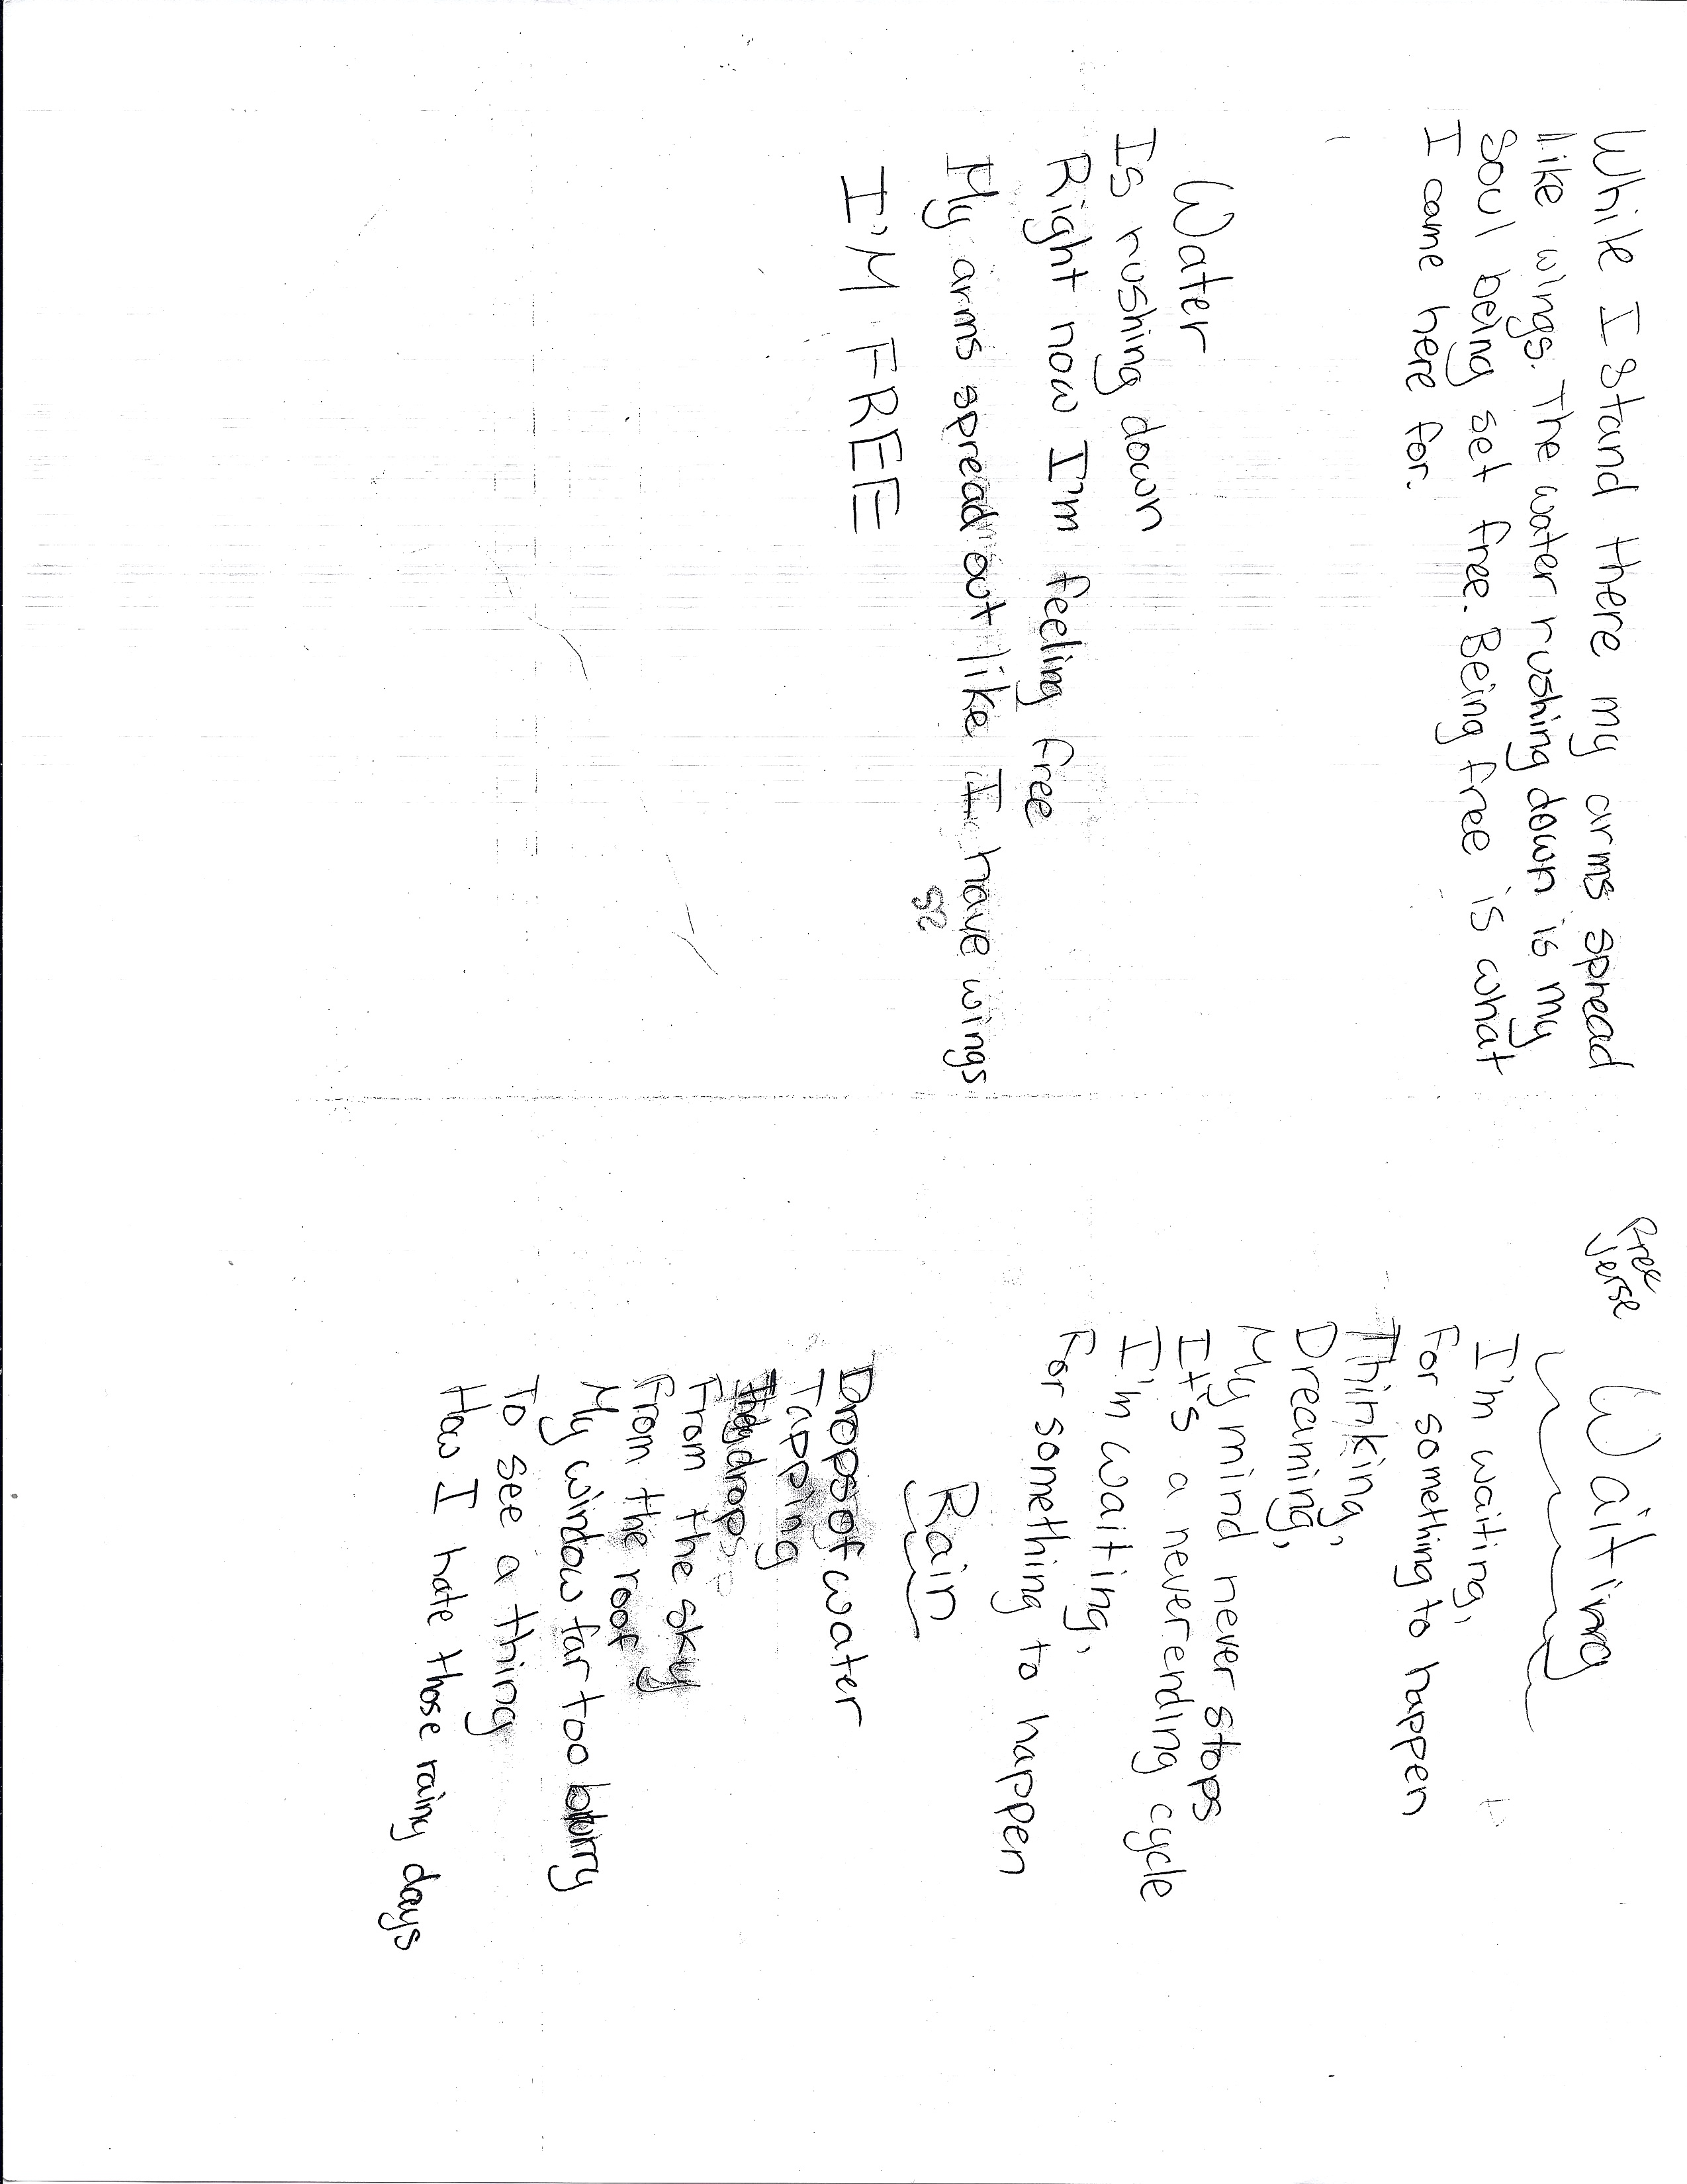 While I stand there my arms spread
like wings. The water rushing down is my
soul being set free. Being free is what
I came here for.
Water
Is rushing down
Right now I'm feeling free
My arms spread out like I have wings
I'M FREE
52
Free
Verse
Waiting
I'm waiting,
For something to happen
Thinking,
Dreaming,
My mind never stops
It's a never ending cycle
I'm waiting,
For something to happen
Rain
Drops of water
Tapping
They drop
From the sky
From the roof
My window far too blurry
To see a thing
How I hate those rainy days